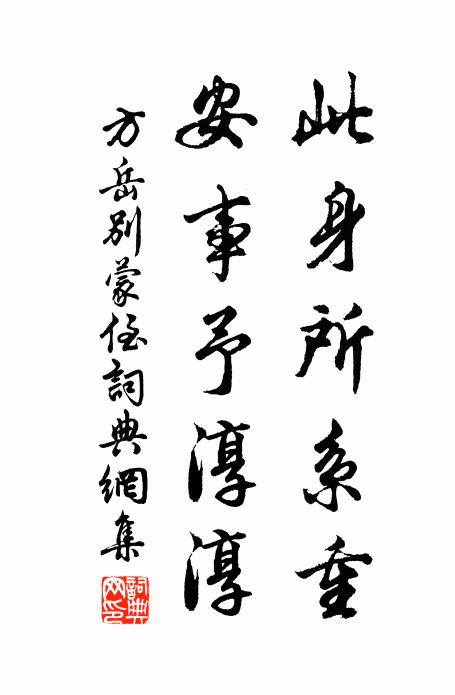 此身所系重
安事予淳淳
方岳別蒙侄詞典網集
詞典网印